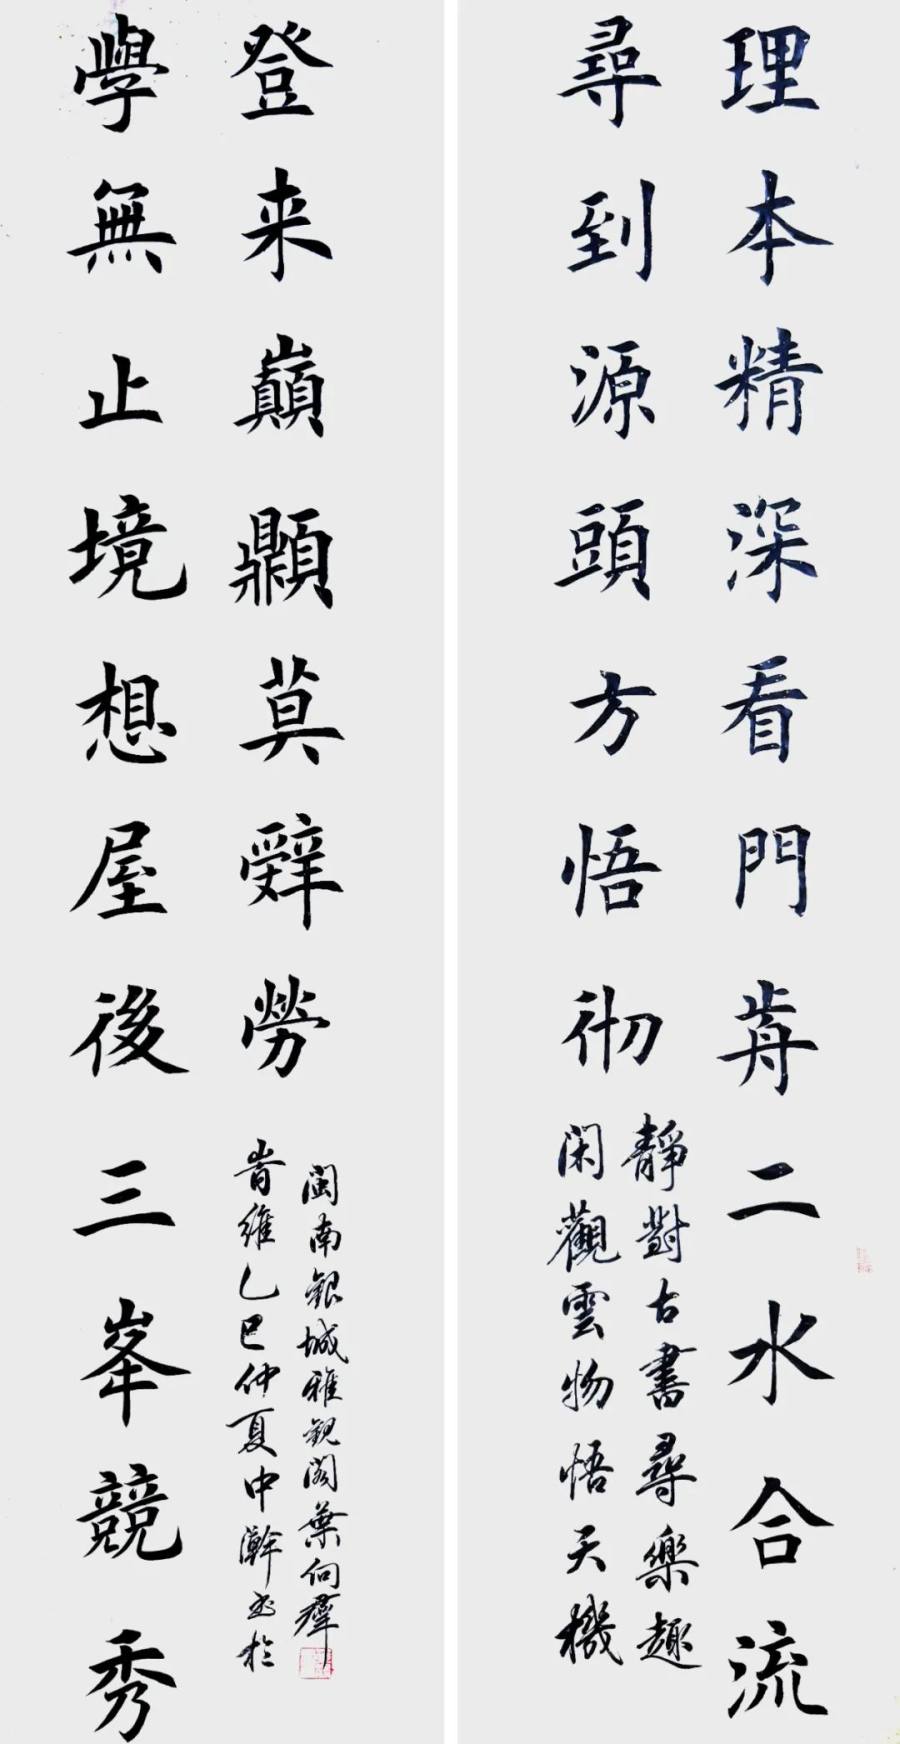 理本精深看門歬二水合流
尋到源頭方悟彻
靜對古書尋樂趣
閑觀雲物悟天機
學無止境想屋後三峯競秀
登来巔𩕢莫辤勞
旹維乙巳仲夏中澣书於
閩南銀城雅觀阁葉向群